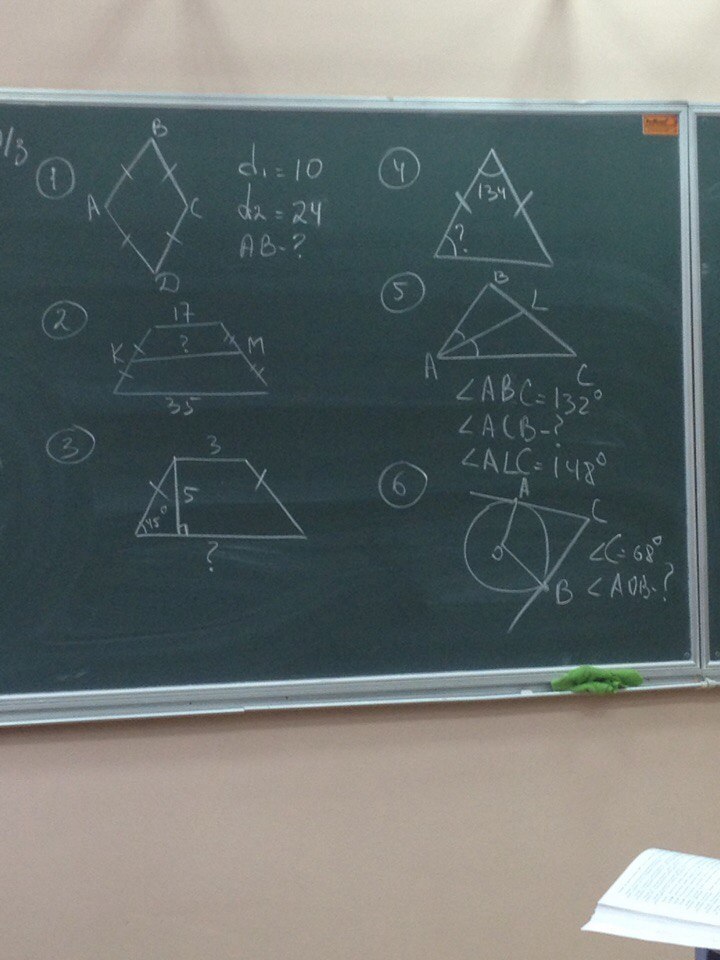 д/з
1
B
A
C
D
d1 = 10
d2 = 24
AB - ?
2
17
K
?
M
35
3
3
5
45°
?
4
134
?
5
B
L
A
C
∠ABC = 132°
∠ACB - ?
∠ALC = 148°
6
A
C
O
B
∠C = 68°
∠AOB - ?